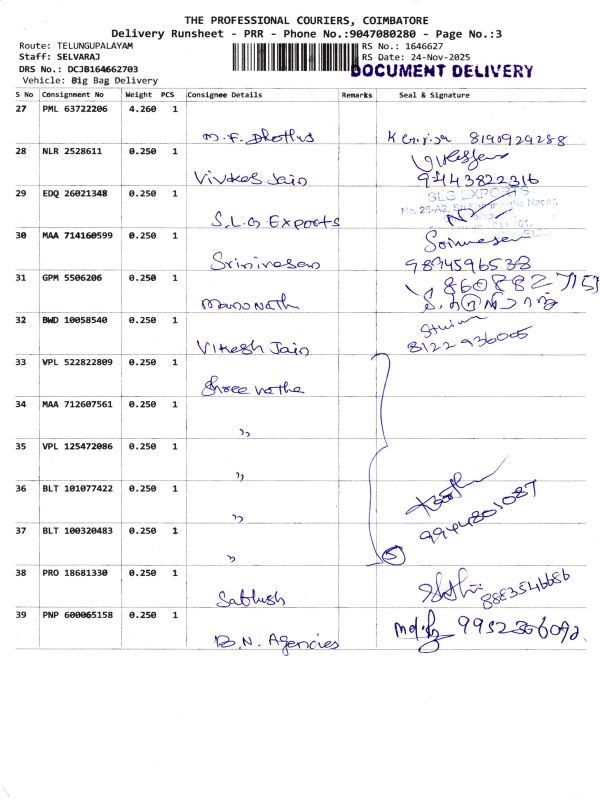 THE PROFESSIONAL COURIERS, COIMBATORE
Delivery Runsheet - PRR - Phone No.:9047080280 - Page No.:3
Route: TELUNGUPALAYAM
RS No.: 1646627
Staff: SELVARAJ
RS Date: 24-Nov-2025
DRS No.: DCJB164662703
DOCUMENT DELIVERY
Vehicle: Big Bag Delivery
S No Consignment No Weight PCS Consignee Details Remarks Seal & Signature
27 PML 63722206 4.260 1
8190929288
28 NLR 2528611 0.250 1
Jain 9443822316
29 EDQ 26021348 0.250 1
SLG EXPORTS
S.L.G Exports
30 MAA 714160599 0.250 1
Srinivasan 9894596538
31 GPM 5506206 0.250 1
32 BWD 10058540 0.250 1
Vikesh Jain 8122936005
33 VPL 522822809 0.250 1
Shree
34 MAA 712607561 0.250 1
"
35 VPL 125472086 0.250 1
"
36 BLT 101077422 0.250 1
" 9944801087
37 BLT 100320483 0.250 1
" 5
38 PRO 18681330 0.250 1
8883546686
39 PNP 600065158 0.250 1
B.N. Agencies